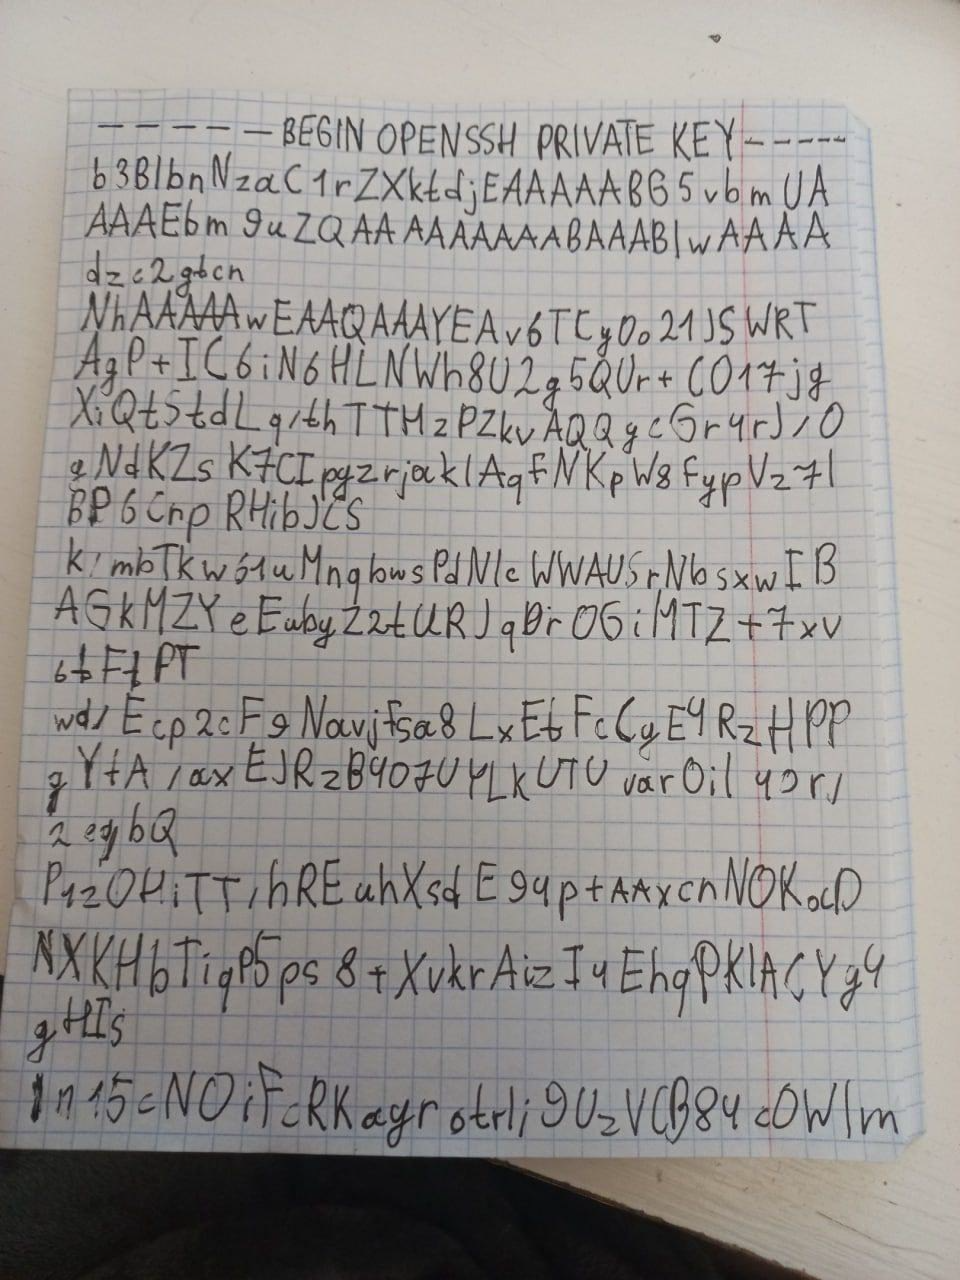 -----BEGIN OPENSSH PRIVATE KEY-----
b3BlbnNzaC1rZXktdjEAAAAABG5vbmUA
AAAEbm9uZQAAAAAAAAABAAABlwAAAA
dzc2gtcn
NhAAAAAwEAAQAAAYEAv6TCy0o21JSWRT
AgP+IC6iN6HLNWh8U2g5QUr+CO17jg
XiQtStdLq/thTTHzPZkvAQQgcGr4rJ/O
gNdKZsK7CIpgzrjaklAqFNKpW8FypVz7l
BP6CnpRHibJCS
k/mbTkw61uMnqbwsPdNlcWWAUSrNbsxwIB
AGkMZYeEubyZ2tURJqDrOGiMTZ+7xv
6tFtPT
wd/Ecp2cF9Navjfsa8LxEtFcCgE4RzHPP
gYtA/axEJRzB4O7UYLkUTUvarOil4Jr/
2egbQ
P1zOHiTT/hREuhXsdE94p+AAxcnNOKocD
NXKHbTiqP5ps8+XvkrAizI4EhqPKlACYg4
gHIs
1n15cNOiFcRKagrotrli9UzVCB84cOWlm